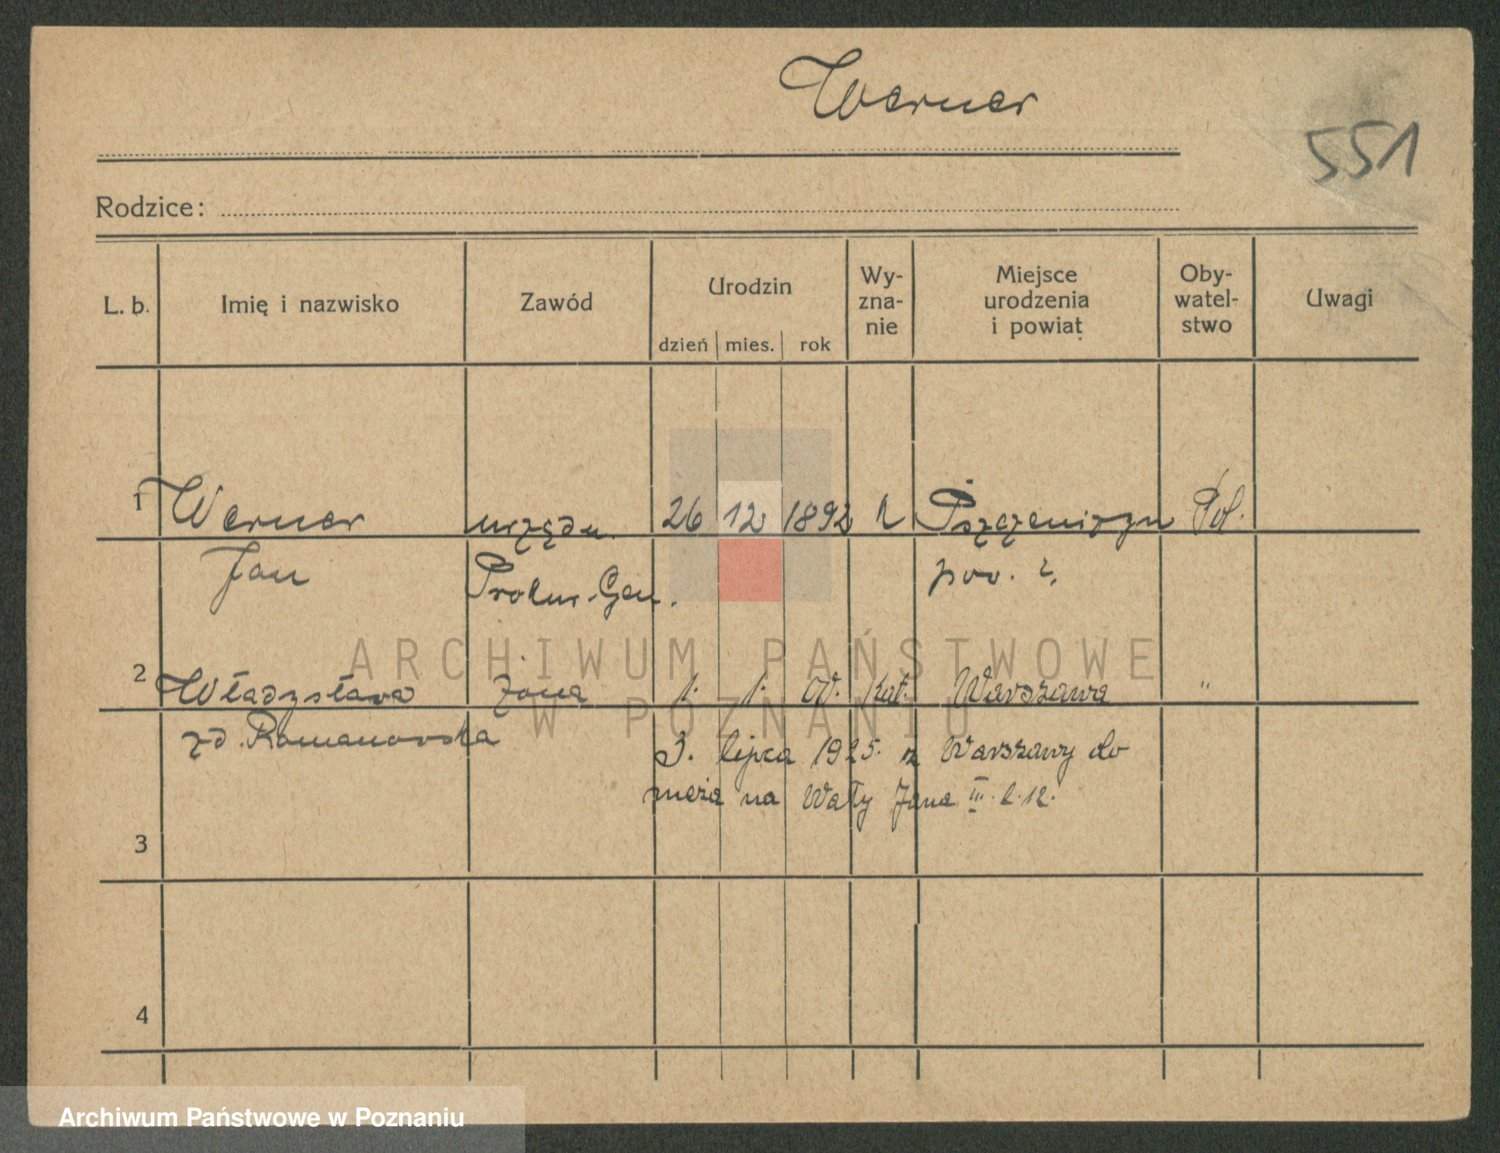 Werner
551
Rodzice:
L. b. Imię i nazwisko Zawód Urodzin dzień mies. rok Wy-zna-nie Miejsce urodzenia i powiat Oby-watel-stwo Uwagi
1 Werner urzędn. 26 12 1892 Pol.
Jan Prokur. Gen. pow.
2 Władysława żona 1. 1. kat. Warszawa "
zd. Romanowska
3. lipca 1925. z Warszawy do
męża na Wały Jana III. l. 12.
3
4
ARCHIWUM PAŃSTWOWE
W POZNANIU
Archiwum Państwowe w Poznaniu